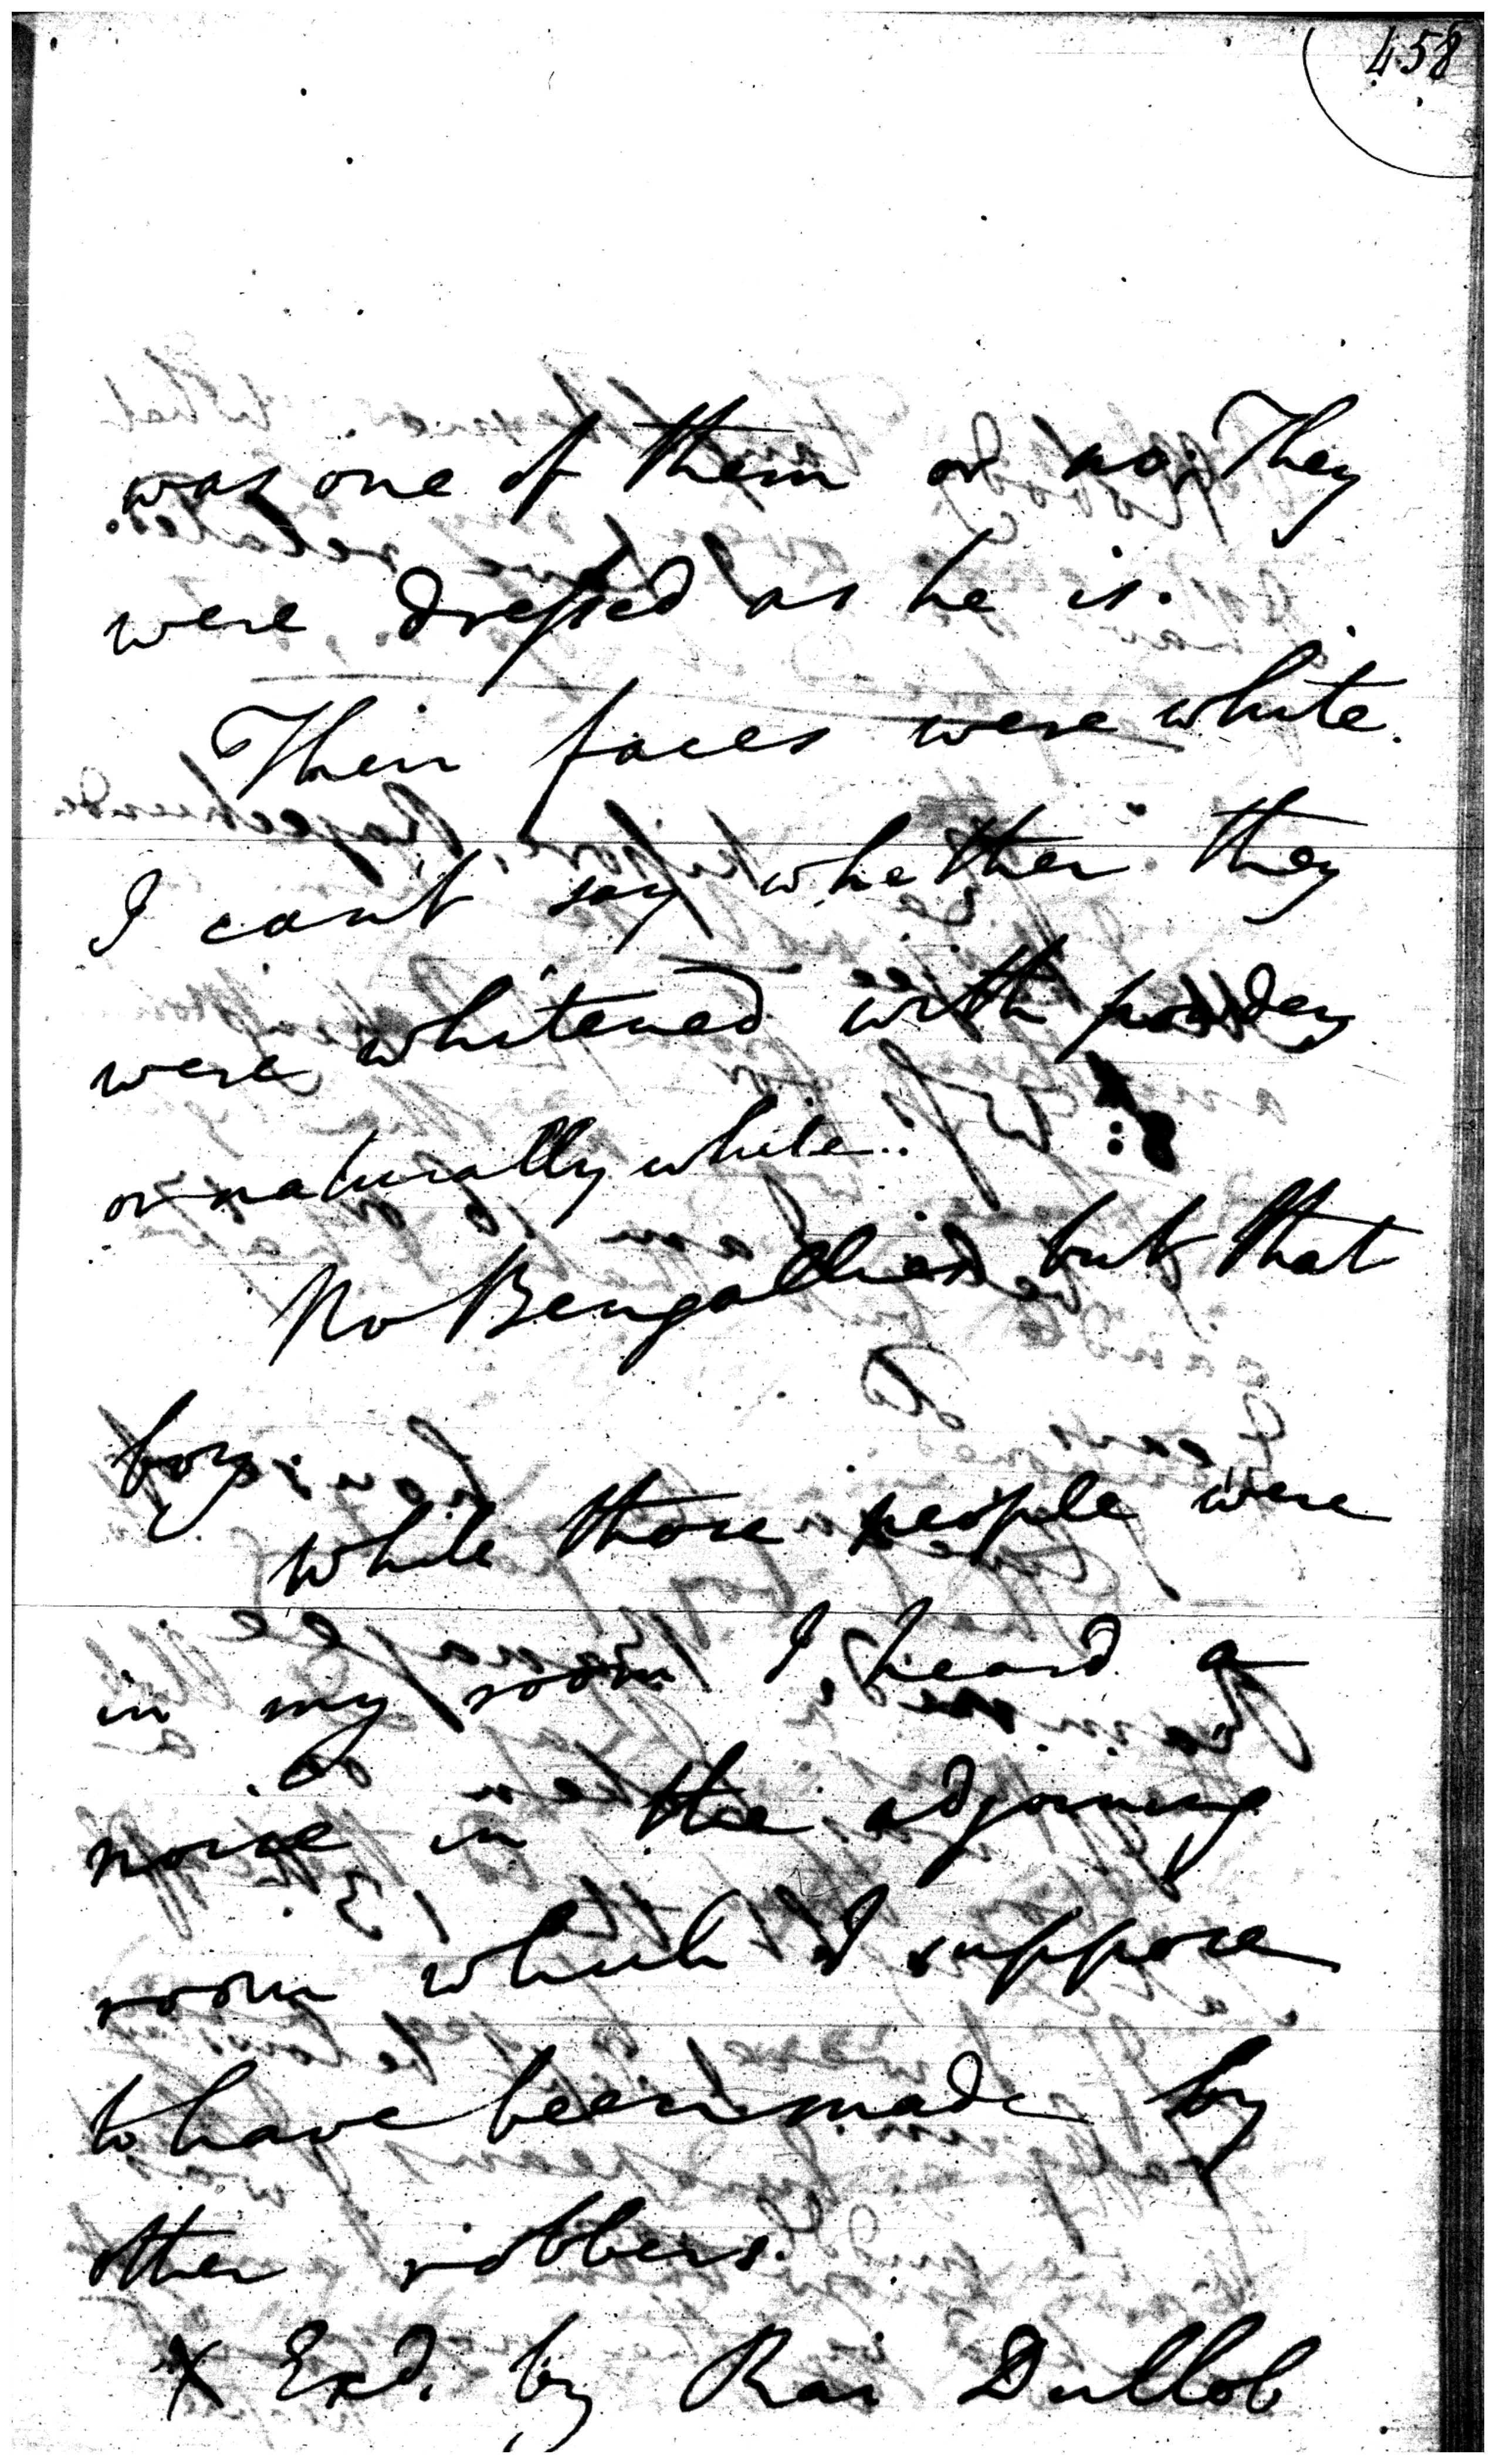 458
was one of them or no. They
were dressed as he is.
Their faces were white.
I cant say whether they
were whitened with powder
or naturally white.
No Bengallied but that
boy
While those people were
in my room I heard a
noise in the adjoining
room which I suppose
to have been made by
other robbers.
X Exd. by Rai Dullob